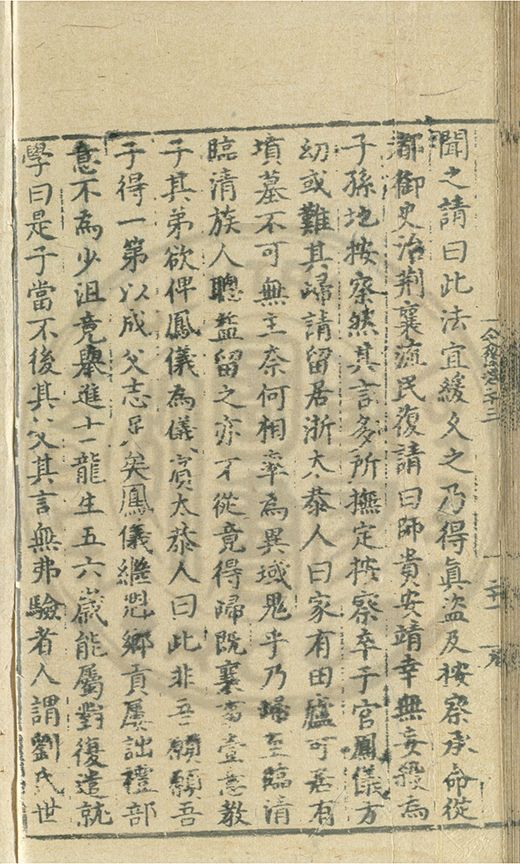 聞之請曰此法宜緩久之乃得真盜及按察承命從
都御史治荆襄流民復請曰師貴安靖幸無妄殺為
子孫地按察然其言多所撫定按察卒于官鳳儀方
幼或難其歸請留居浙太恭人曰家有田廬可居有
墳墓不可無主奈何相率為異域鬼乎乃歸至臨清
臨清族人聰益留之亦不從竟得歸既襄畜壹意教
子其弟欲俾鳳儀為儀賓太恭人曰此非吾願願吾
子得一第以成父志足矣鳳儀繼魁鄉貢屢詘禮部
意不為少沮竟舉進士龍生五六歲能屬對復遣就
學曰是子當不後其父其言無弗驗者人謂劉氏世